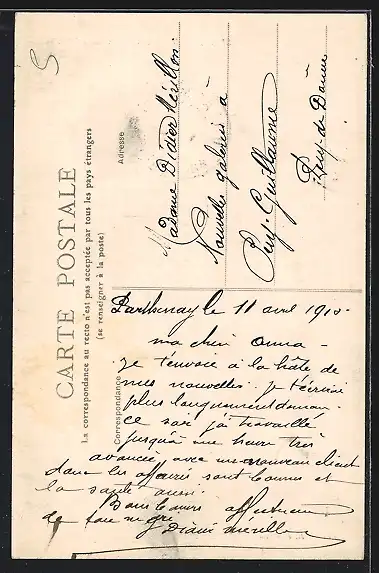 5
CARTE POSTALE
La correspondance au recto n'est pas acceptée par tous les pays étrangers
(se renseigner à la poste)
Correspondance
Adresse
Madame Didier Mérillon
Nouvelle galerie à
Puy-Guillaume
Puy-de-Dôme
Parthenay le 11 avril 1910
ma chère Anna -
je t'envoie à la hâte de
mes nouvelles. je t'écrirai
plus longuement demain.
ce soir j'ai travaillé
jusqu'à une heure très
avancée avec un nouveau client
donc les affaires sont bonnes et
la santé aussi.
Bons baisers affectueux
de
Didier Mérillon